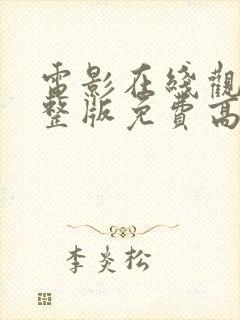 電影在綫觀
整版免費高
李炎松